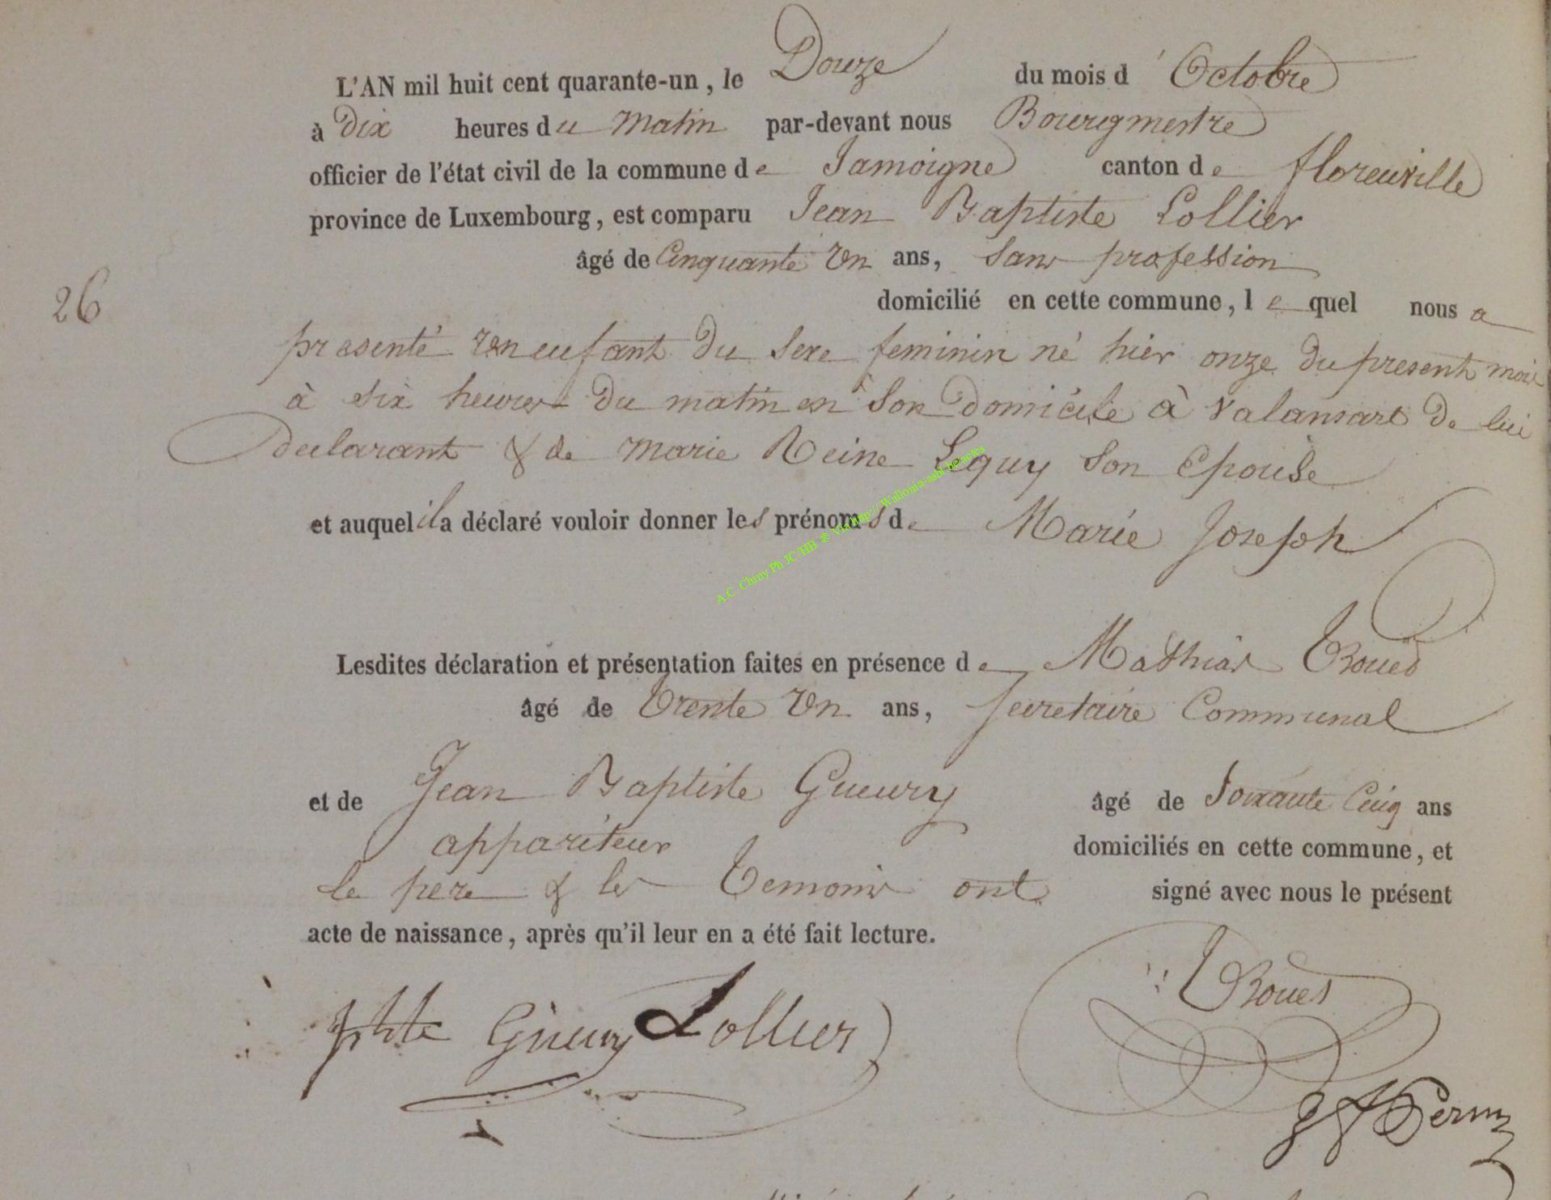 L'AN mil huit cent quarante-un, le Douze du mois d'Octobre
à dix heures du matin par-devant nous Bourgmestre
officier de l'état civil de la commune de Jamoigne canton de florenville
province de Luxembourg, est comparu Jean Baptiste Lollier
âgé de Cinquante Un ans, Sans profession
26
domicilié en cette commune, lequel nous a
presenté Un enfant du Sexe feminin né hier onze du present mois
à six heures du matin en Son Domicile à Valansart de lui
declarant & de Marie Reine Lequy Son Epouse
et auquel il a déclaré vouloir donner les prénoms de Marie Joseph
Lesdites déclaration et présentation faites en présence de Mathias Troues
âgé de Trente Un ans, Secretaire Communal
et de Jean Baptiste Gueury âgé de Soixante Cinq ans
appariteur domiciliés en cette commune, et
le pere & les Temoins ont signé avec nous le présent
acte de naissance, après qu'il leur en a été fait lecture.
Troues
Gueury Lollier